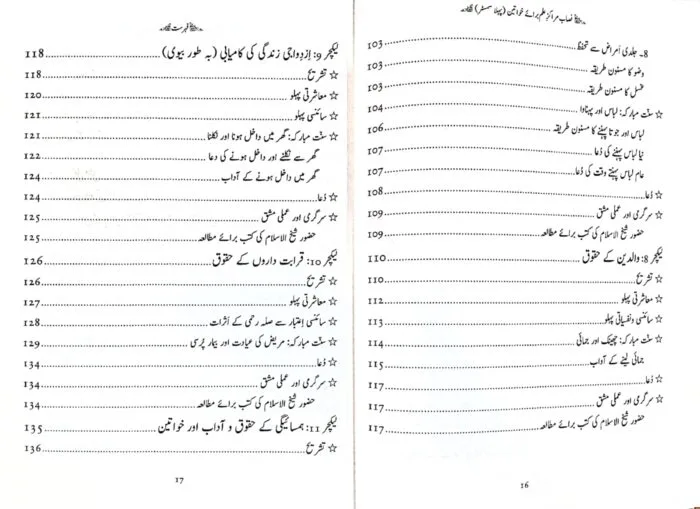 نصاب مراکز علم برائے خواتین (پہلا سمسٹر)
8۔ جلدی اَمراض سے تحفظ 103
وضو کا مسنون طریقہ 103
غسل کا مسنون طریقہ 103
☆ سنّت مبارکہ: لباس اور پہناوا 104
لباس اور جوتا پہننے کا مسنون طریقہ 106
نیا لباس پہننے کی دُعا 107
عام لباس پہنتے وقت کی دُعا 107
☆ دُعا 108
☆ سرگرمی اور عملی مشق 109
حضور شیخ الاسلام کی کتب برائے مطالعہ 109
لیکچر 8: والدین کے حقوق 110
☆ تشریح 110
☆ معاشرتی پہلو 112
☆ سائنسی و نفسیاتی پہلو 113
☆ سنّت مبارکہ: چھینک اور جمائی 114
جمائی لینے کے آداب 115
☆ دُعا 114
☆ سرگرمی اور عملی مشق 117
حضور شیخ الاسلام کی کتب برائے مطالعہ 117
16
فہرست
لیکچر 9: اِزدواجی زندگی کی کامیابی (بہ طور بیوی) 118
☆ تشریح 118
☆ معاشرتی پہلو 120
☆ سائنسی پہلو 121
☆ سنّت مبارکہ: گھر میں داخل ہونا اور نکلنا 121
گھر سے نکلنے اور داخل ہونے کی دعا 122
گھر میں داخل ہونے کے آداب 124
☆ دُعا 124
☆ سرگرمی اور عملی مشق 125
حضور شیخ الاسلام کی کتب برائے مطالعہ 125
لیکچر 10: قرابت داروں کے حقوق 126
☆ تشریح 126
☆ معاشرتی پہلو 127
☆ سائنسی اِعتبار سے صلہ رحمی کے اَثرات 128
☆ سنّت مبارکہ: مریض کی عیادت اور بیمار پُرسی 129
☆ دُعا 134
☆ سرگرمی اور عملی مشق 134
حضور شیخ الاسلام کی کتب برائے مطالعہ 134
لیکچر 11: ہمسائیگی کے حقوق و آداب اور خواتین 135
☆ تشریح 136
17